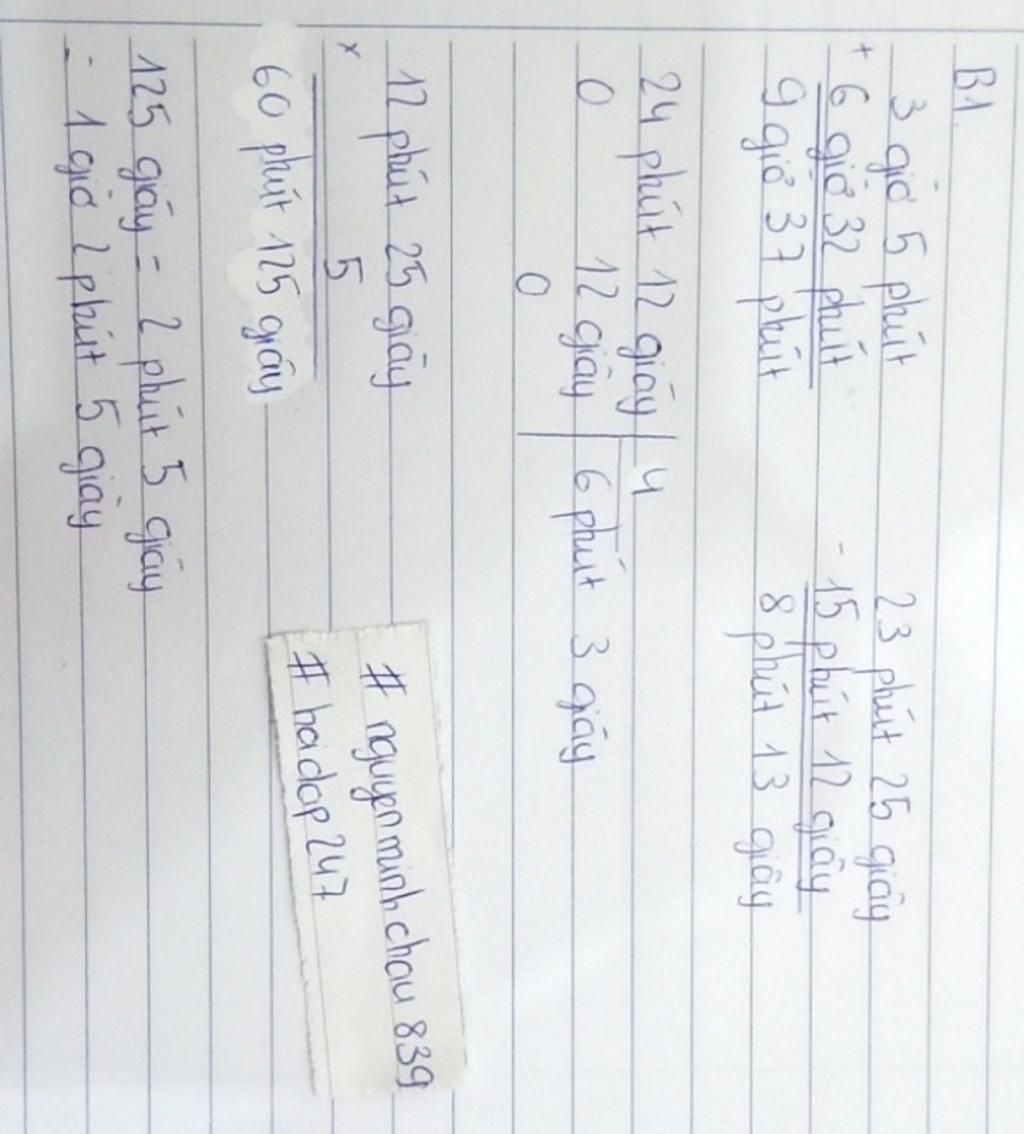 B1.
3 giờ 5 phút
+
6 giờ 32 phút
9 giờ 37 phút
23 phút 25 giây
-
15 phút 12 giây
8 phút 13 giây
24 phút 12 giây 4
0 12 giây 6 phút 3 giây
0
12 phút 25 giây
×
5
60 phút 125 giây
125 giây = 2 phút 5 giây
= 1 giờ 2 phút 5 giây
# nguyenminhchau839
# hoidap247